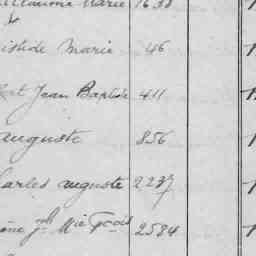 Marie 1638
istide Marie 46
et Jean Baptiste 411
auguste 856
harles auguste 2237
jph Mie Fçois 2584